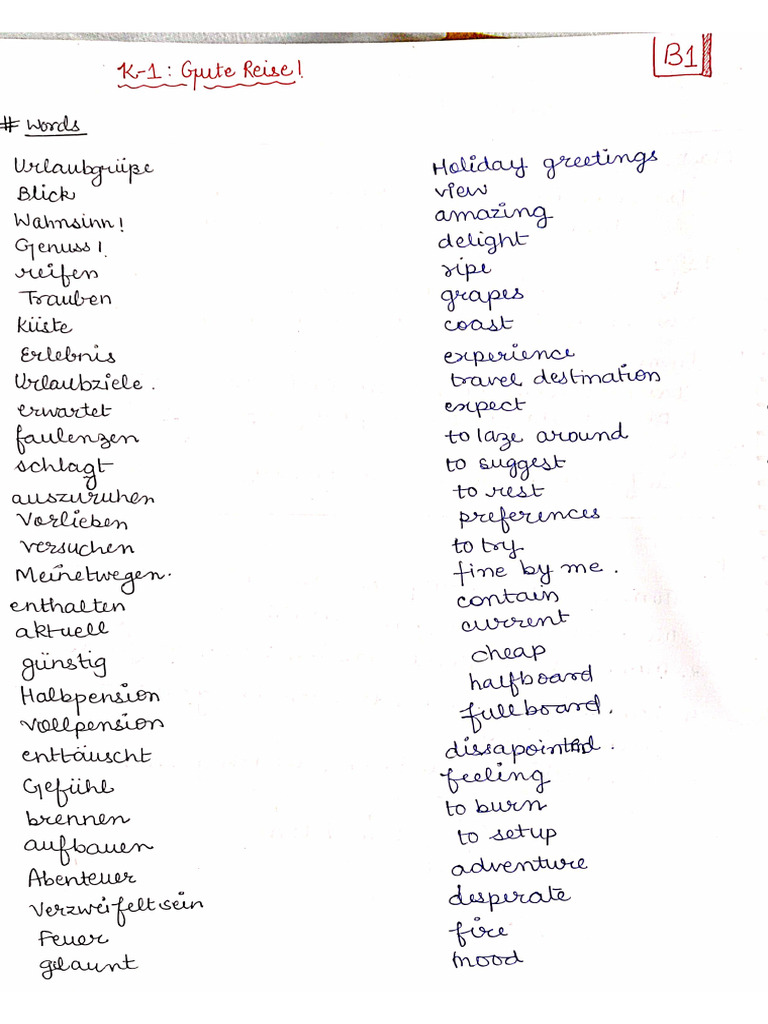 B1
K-1: Gute Reise!
# Words
Urlaubgrüße Holiday greetings
Blick view
Wahnsinn! amazing
Genuss! delight
reifen ripe
Trauben grapes
Küste coast
Erlebnis experience
Urlaubziele. travel destination
erwartet expect
faulenzen to laze around
schlagt to suggest
auszuruhen to rest
Vorlieben preferences
versuchen to try
Meinetwegen. fine by me.
enthalten contain
aktuell current
günstig cheap
Halbpension halfboard
Vollpension fullboard.
enttäuscht dissapointed.
Gefühl feeling
brennen to burn
aufbauen to setup
Abenteuer adventure
Verzweifelt sein desperate
Feuer fire
gelaunt mood